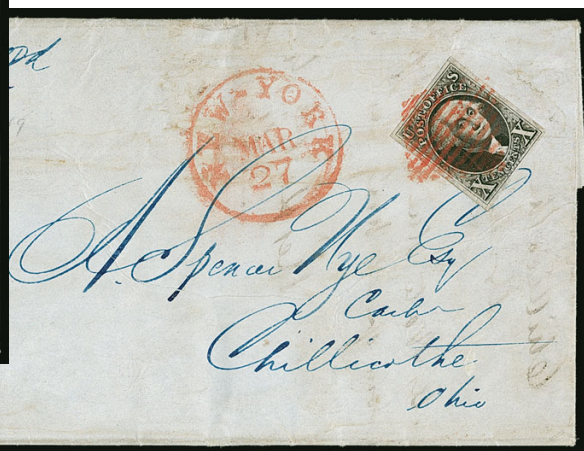 NEW-YORK
MAR
27
POST OFFICE
U S
X TEN CENTS X
A. Spencer Nye Esq
Cashr
Chillicothe
Ohio